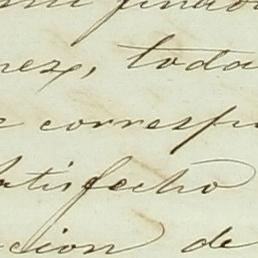 mi finado
nez, toda
e corresp
satisfecho
cion de